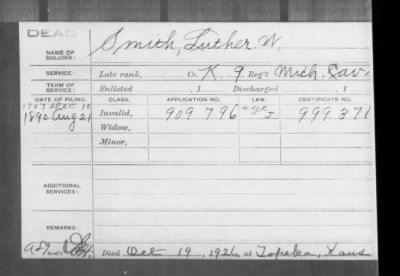 DEAD
NAME OF SOLDIER: Smith, Luther W.
SERVICE: Late rank, Co. K, 9 Reg't Mich. Cav.
TERM OF SERVICE: Enlisted , 1 Discharged , 1
DATE OF FILING. CLASS. APPLICATION NO. LAW. CERTIFICATE NO.
1907 Dec 10
1890 Aug 21 Invalid, 909796 J 999371
Widow,
Minor,
ADDITIONAL SERVICES:
REMARKS:
Died Oct 19, 1926, at Topeka, Kans